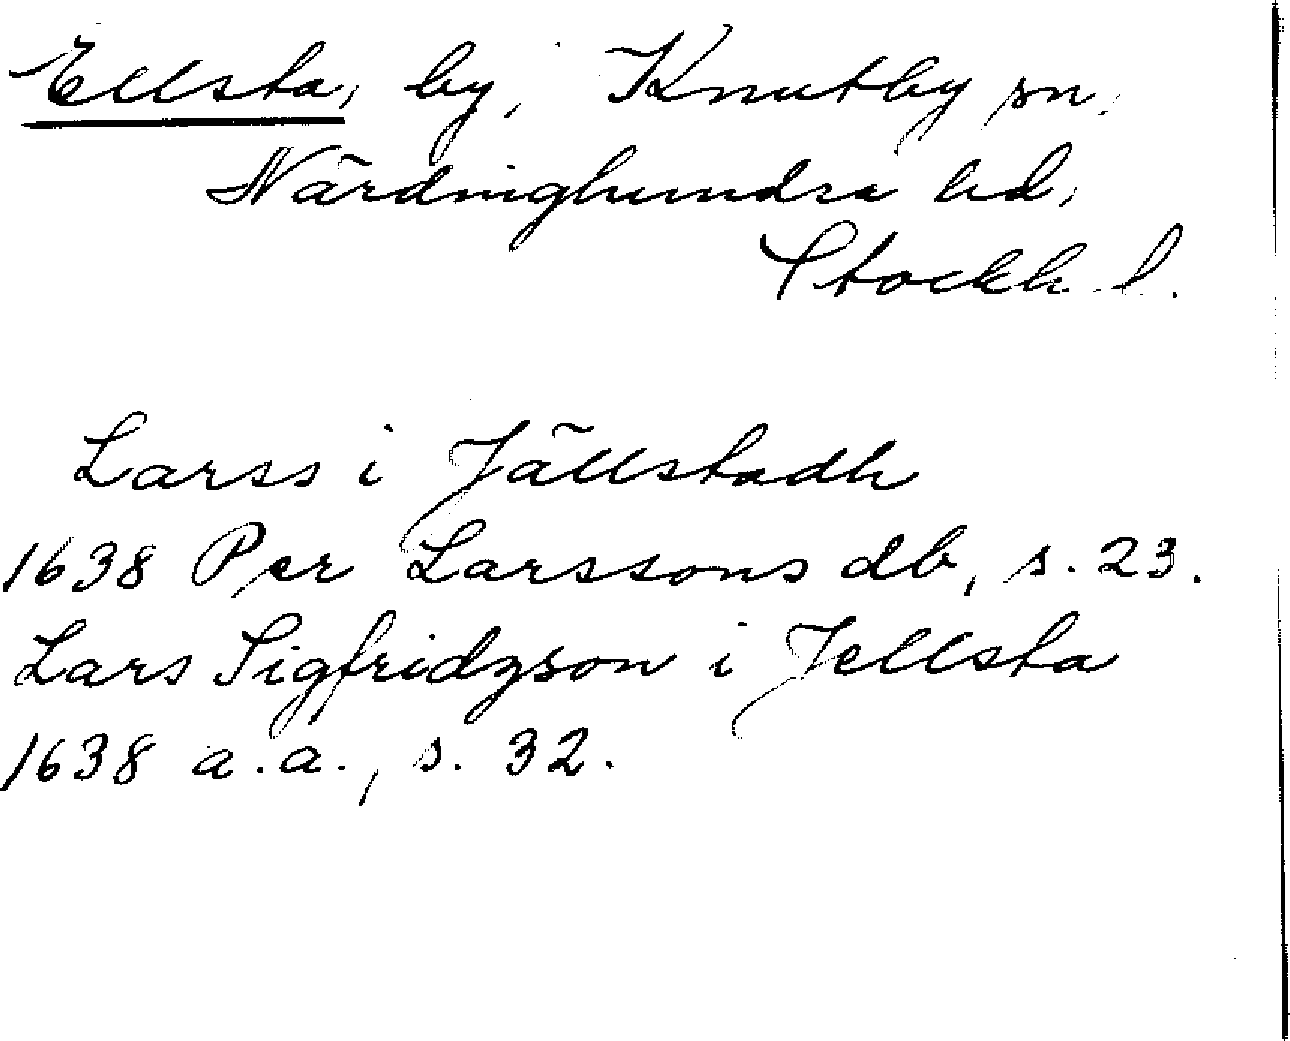 Ellsta, by, Knutby sn,
Närdinghundra hd,
Stockh. l.
Larss i Jällstadh
1638 Per Larssons db, s. 23.
Lars Sigfridzson i Jellsta
1638 a.a., s. 32.